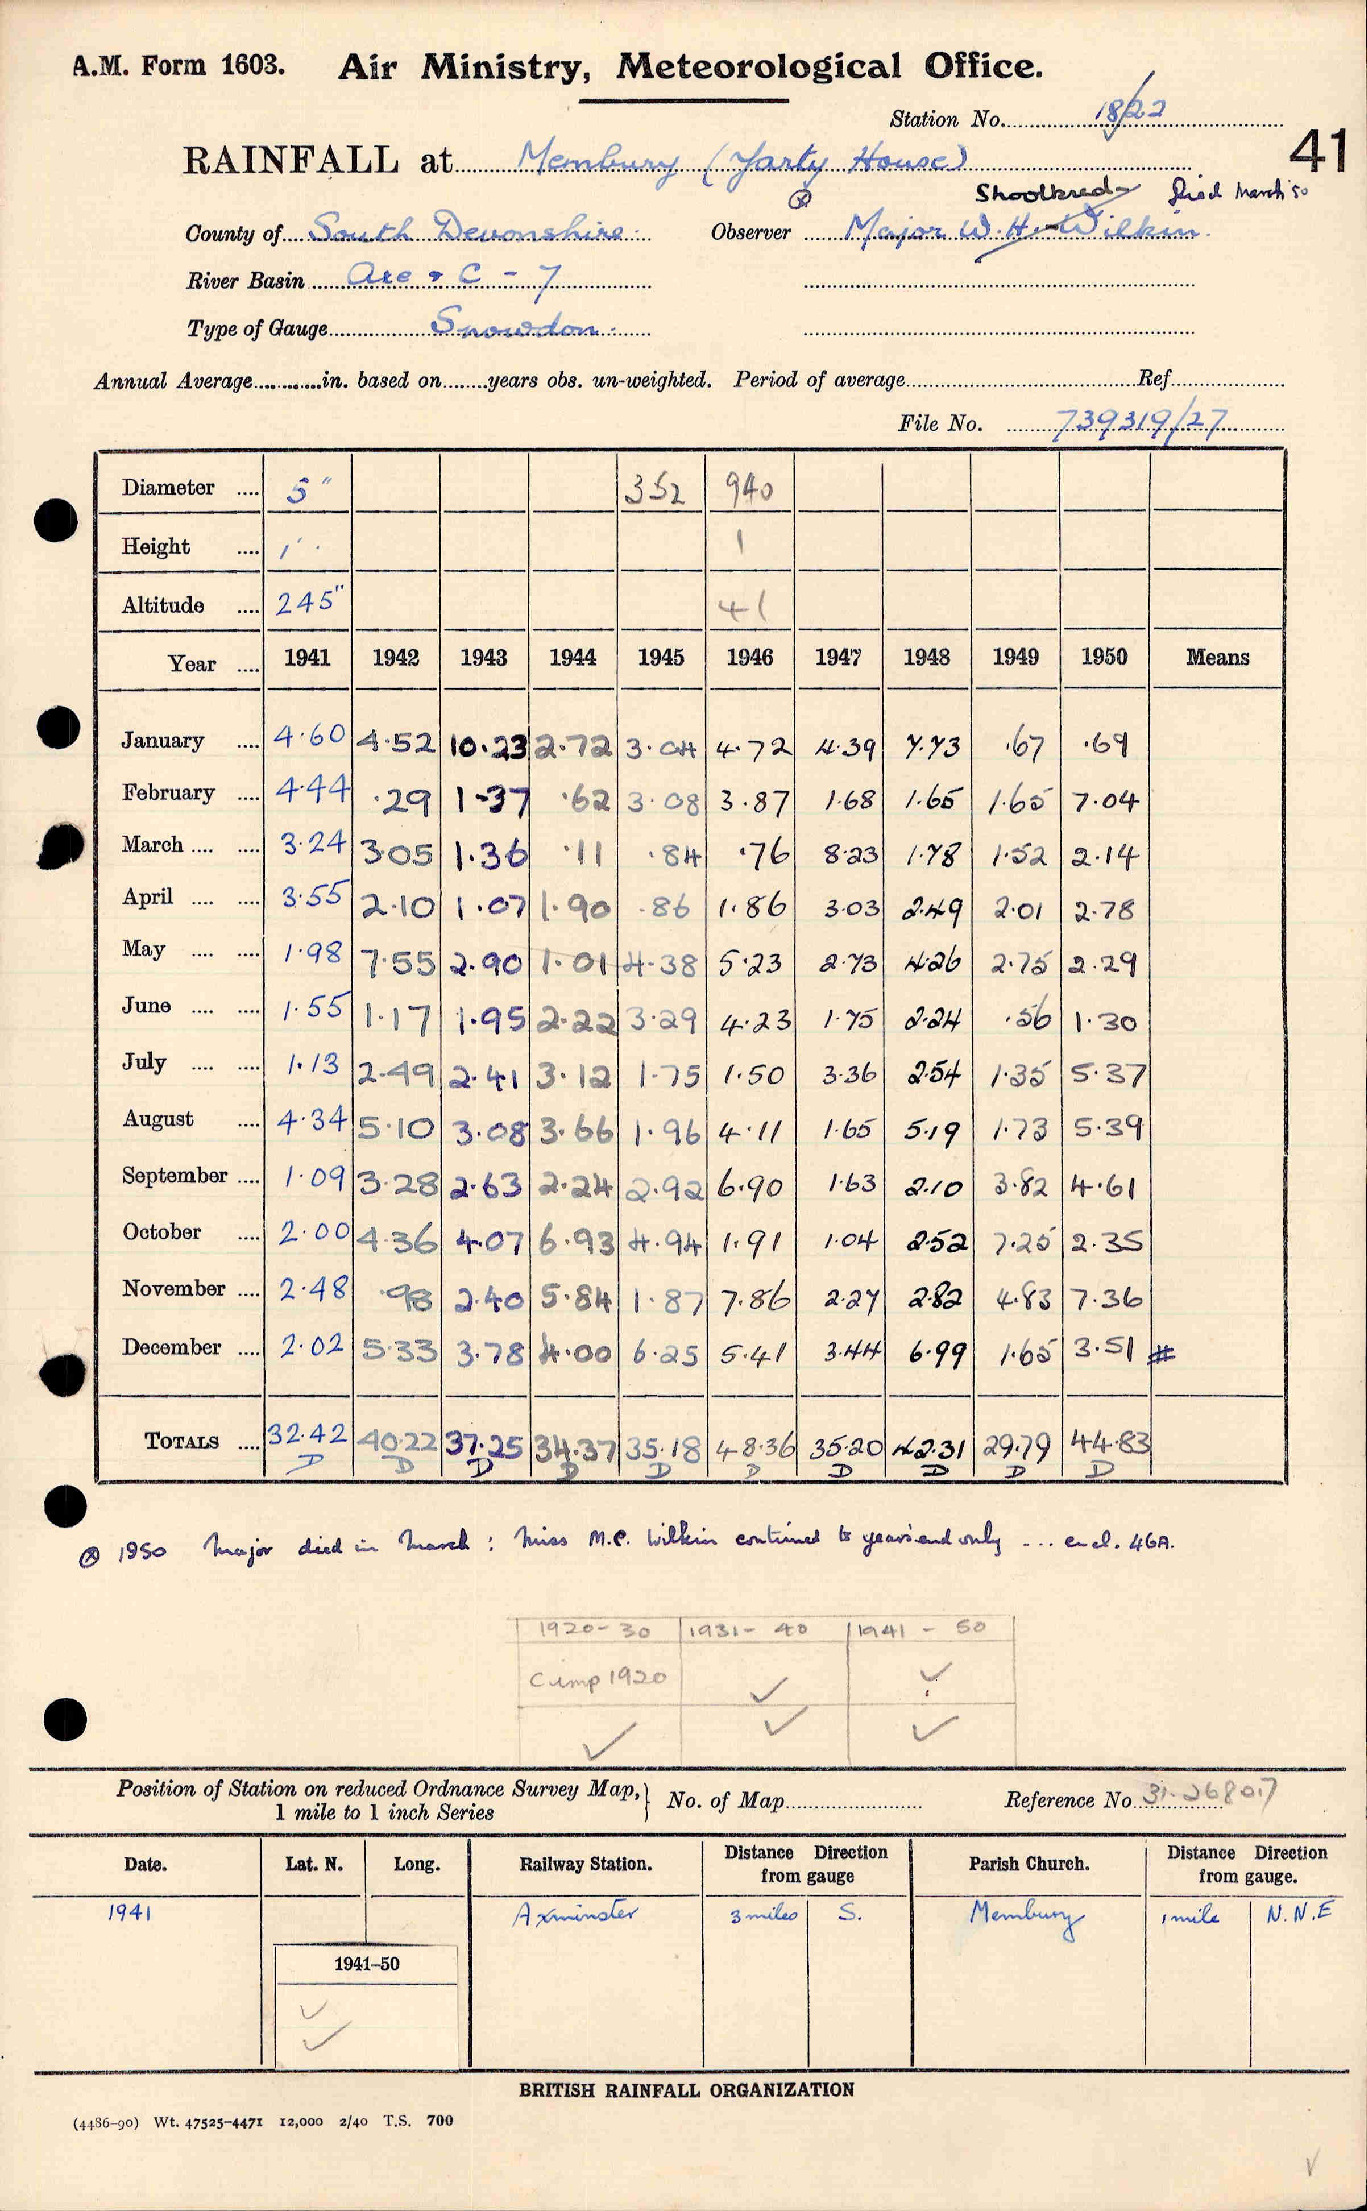 A.M. Form 1603. Air Ministry, Meteorological Office.
Station No. 18/22
41
RAINFALL at Membury (Yarty House)
Shootbred died March '50
County of South Devonshire. Observer Major W. H. Wilkin.
River Basin Axe & C - 7
Type of Gauge Snowdon.
Annual Average in. based on years obs. un-weighted. Period of average Ref
File No. 739319/27
Diameter 5" 352 940
Height 1' 1
Altitude 245" 41
Year 1941 1942 1943 1944 1945 1946 1947 1948 1949 1950 Means
January 4.60 4.52 10.23 2.72 3.04 4.72 4.39 7.73 .67 .69
February 4.44 .29 1.37 .62 3.08 3.87 1.68 1.65 1.65 7.04
March 3.24 3.05 1.36 .11 .84 .76 8.23 1.78 1.52 2.14
April 3.55 2.10 1.07 1.90 .86 1.86 3.03 2.49 2.01 2.78
May 1.98 7.55 2.90 1.01 4.38 5.23 2.73 4.26 2.75 2.29
June 1.55 1.17 1.95 2.22 3.29 4.23 1.75 2.24 .56 1.30
July 1.13 2.49 2.41 3.12 1.75 1.50 3.36 2.54 1.35 5.37
August 4.34 5.10 3.08 3.66 1.96 4.11 1.65 5.19 1.73 5.39
September 1.09 3.28 2.63 2.24 2.92 6.90 1.63 2.10 3.82 4.61
October 2.00 4.36 4.07 6.93 4.94 1.91 1.04 2.52 7.25 2.35
November 2.48 .98 2.40 5.84 1.87 7.86 2.27 2.82 4.83 7.36
December 2.02 5.33 3.78 4.00 6.25 5.41 3.44 6.99 1.65 3.51 #
TOTALS 32.42 40.22 37.25 34.37 35.18 48.36 35.20 42.31 29.79 44.83
D D D D D D D D D D
⊗ 1950 Major died in March : Miss M.C. Wilkin continued to year's end only ... encl. 46A.
1920-30 1931-40 1941-50
Comp 1920 ✓ ✓
✓ ✓ ✓
Position of Station on reduced Ordnance Survey Map, 1 mile to 1 inch Series No. of Map Reference No 31.268017
Date. Lat. N. Long. Railway Station. Distance from gauge Direction Parish Church. Distance from gauge. Direction
1941 Axminster 3 miles S. Membury 1 mile N.N.E
1941-50
✓
✓
BRITISH RAINFALL ORGANIZATION
(4486-90) Wt. 47525-4471 12,000 2/40 T.S. 700